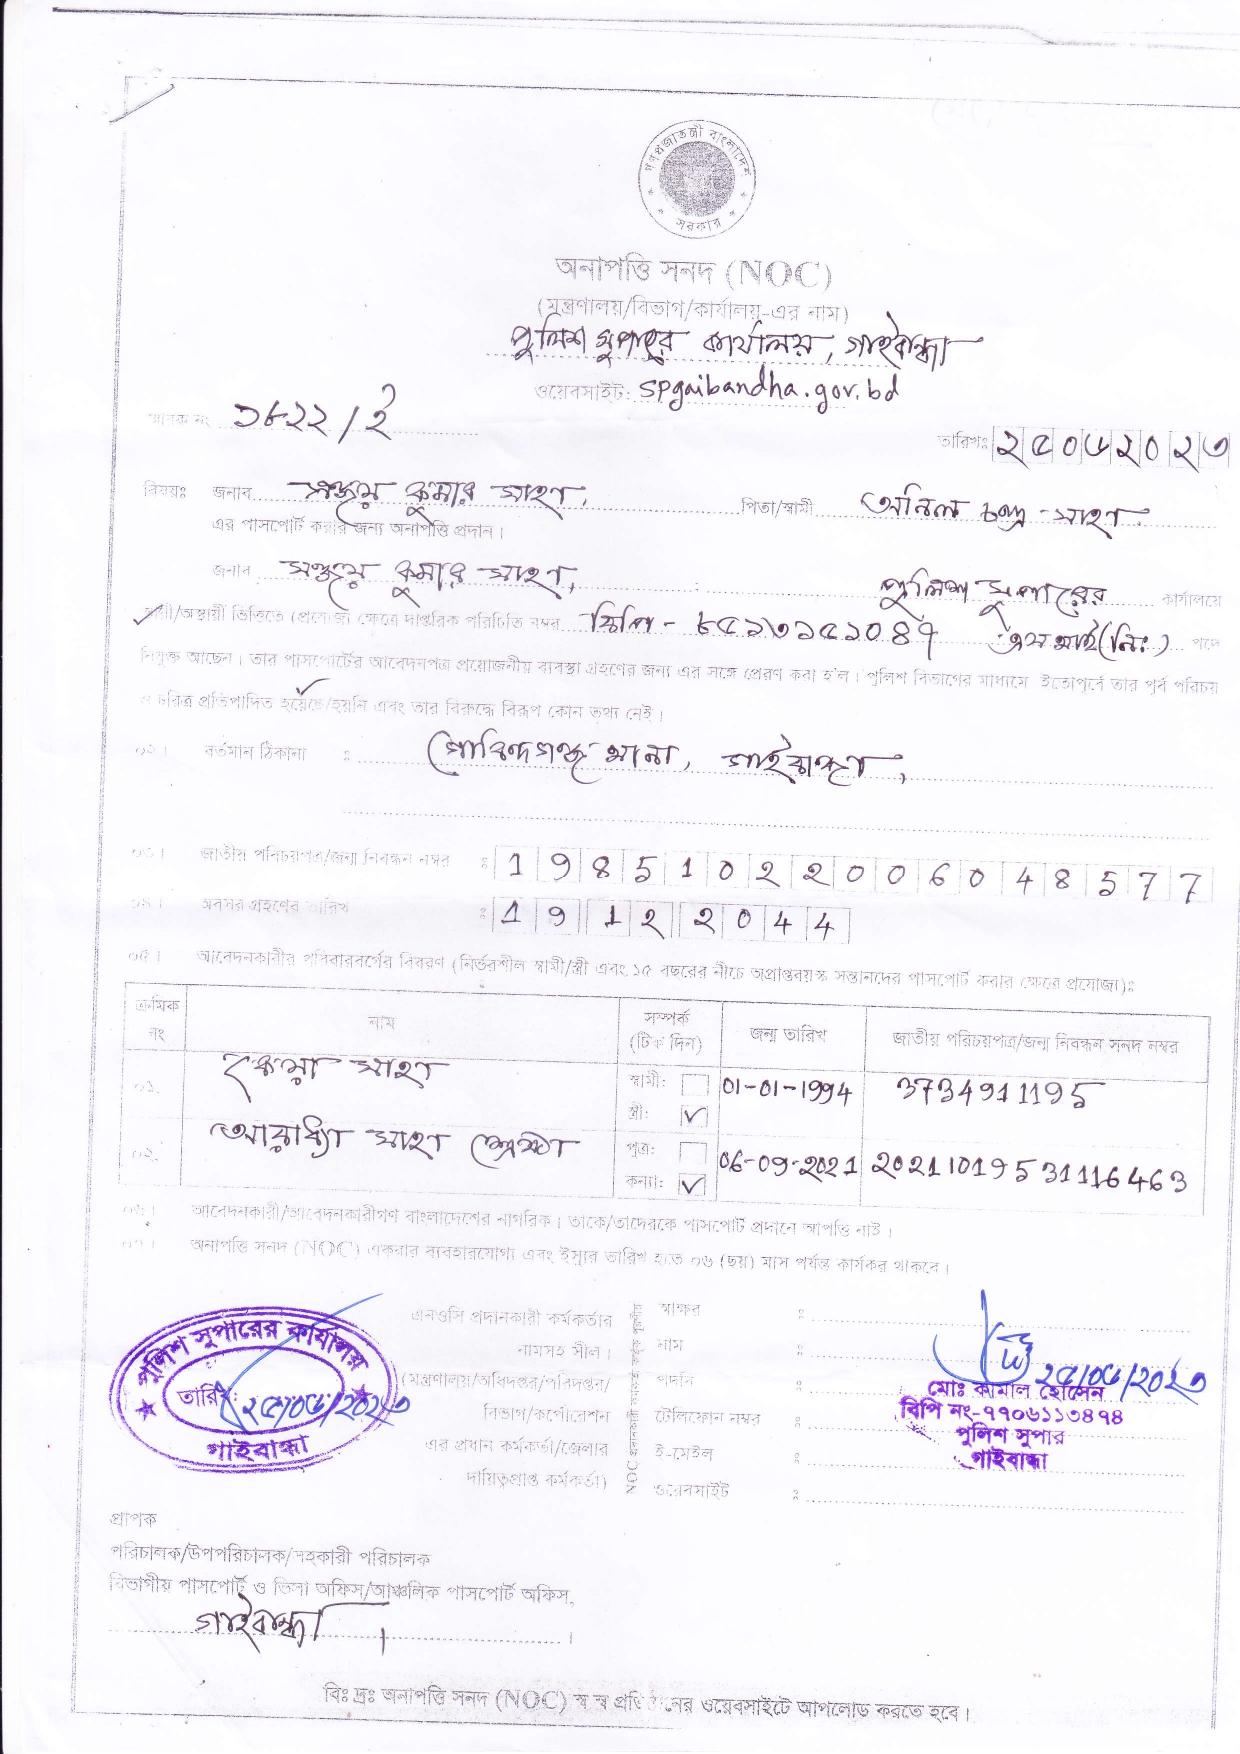 গণপ্রজাতন্ত্রী বাংলাদেশ
সরকার
অনাপত্তি সনদ (NOC)
(মন্ত্রণালয়/বিভাগ/কার্যালয়-এর নাম)
পুলিশ সুপারের কার্যালয়, গাইবান্ধা
ওয়েবসাইট: spgaibandha.gov.bd
স্মারক নং ১৮২২/ই
তারিখঃ ২৫০৬২০২৩
বিষয়ঃ জনাব সঞ্জয় কুমার সাহা, পিতা/স্বামী অনিল চন্দ্র সাহা
এর পাসপোর্ট করার জন্য অনাপত্তি প্রদান।
জনাব সঞ্জয় কুমার সাহা, পুলিশ সুপারের কার্যালয়ে
স্থায়ী/অস্থায়ী ভিত্তিতে (প্রযোজ্য ক্ষেত্রে দাপ্তরিক পরিচিতি নম্বর বিপি-৮৫১৩১৫১০৪৭ এস আই(নিঃ) পদে
নিযুক্ত আছেন। তার পাসপোর্টের আবেদনপত্র প্রয়োজনীয় ব্যবস্থা গ্রহণের জন্য এর সঙ্গে প্রেরণ করা হ'ল। পুলিশ বিভাগের মাধ্যমে ইতোপূর্বে তার পূর্ব পরিচয়
ও চরিত্র প্রতিপাদিত হয়েছে/হয়নি এবং তার বিরুদ্ধে বিরূপ কোন তথ্য নেই।
০২। বর্তমান ঠিকানা : গোবিন্দগঞ্জ থানা, গাইবান্ধা,
০৩। জাতীয় পরিচয়পত্র/জন্ম নিবন্ধন নম্বর ঃ 19851022006048577
০৪। অবসর গ্রহণের তারিখ ঃ 19 12 2044
০৫। আবেদনকারীর পরিবারবর্গের বিবরণ (নির্ভরশীল স্বামী/স্ত্রী এবং ১৫ বছরের নীচে অপ্রাপ্তবয়স্ক সন্তানদের পাসপোর্ট করার ক্ষেত্রে প্রযোজ্য)ঃ
ক্রমিক নং নাম সম্পর্ক (টিক দিন) জন্ম তারিখ জাতীয় পরিচয়পত্র/জন্ম নিবন্ধন সনদ নম্বর
০১. সাহা স্বামী: 01-01-1994 3734911195
স্ত্রী: ✓
০২. আরাধ্যা সাহা পুত্র: 06-09-2021 20211019531116463
কন্যা: ✓
০৬। আবেদনকারী/আবেদনকারীগণ বাংলাদেশের নাগরিক। তাকে/তাদেরকে পাসপোর্ট প্রদানে আপত্তি নাই।
০৭। অনাপত্তি সনদ (NOC) একবার ব্যবহারযোগ্য এবং ইস্যুর তারিখ হতে ০৬ (ছয়) মাস পর্যন্ত কার্যকর থাকবে।
পুলিশ সুপারের কার্যালয়
তারিখ: ২৫/০৬/২০২৩
গাইবান্ধা
এনওসি প্রদানকারী কর্মকর্তার
নামসহ সীল।
(মন্ত্রণালয়/অধিদপ্তর/পরিদপ্তর/
বিভাগ/কর্পোরেশন
এর প্রধান কর্মকর্তা/জেলার
দায়িত্বপ্রাপ্ত কর্মকর্তা)
স্বাক্ষর ঃ
নাম ঃ
পদবি
টেলিফোন নম্বর ঃ
ই-মেইল ঃ
ওয়েবসাইট ঃ
২৫/০৬/২০২৩
মোঃ কামাল হোসেন
বিপি নং-৭৭০৬১১৩৪৭৪
পুলিশ সুপার
গাইবান্ধা
প্রাপক
পরিচালক/উপপরিচালক/সহকারী পরিচালক
বিভাগীয় পাসপোর্ট ও ভিসা অফিস/আঞ্চলিক পাসপোর্ট অফিস,
গাইবান্ধা।
বিঃ দ্রঃ অনাপত্তি সনদ (NOC) স্ব স্ব প্রতিষ্ঠানের ওয়েবসাইটে আপলোড করতে হবে।